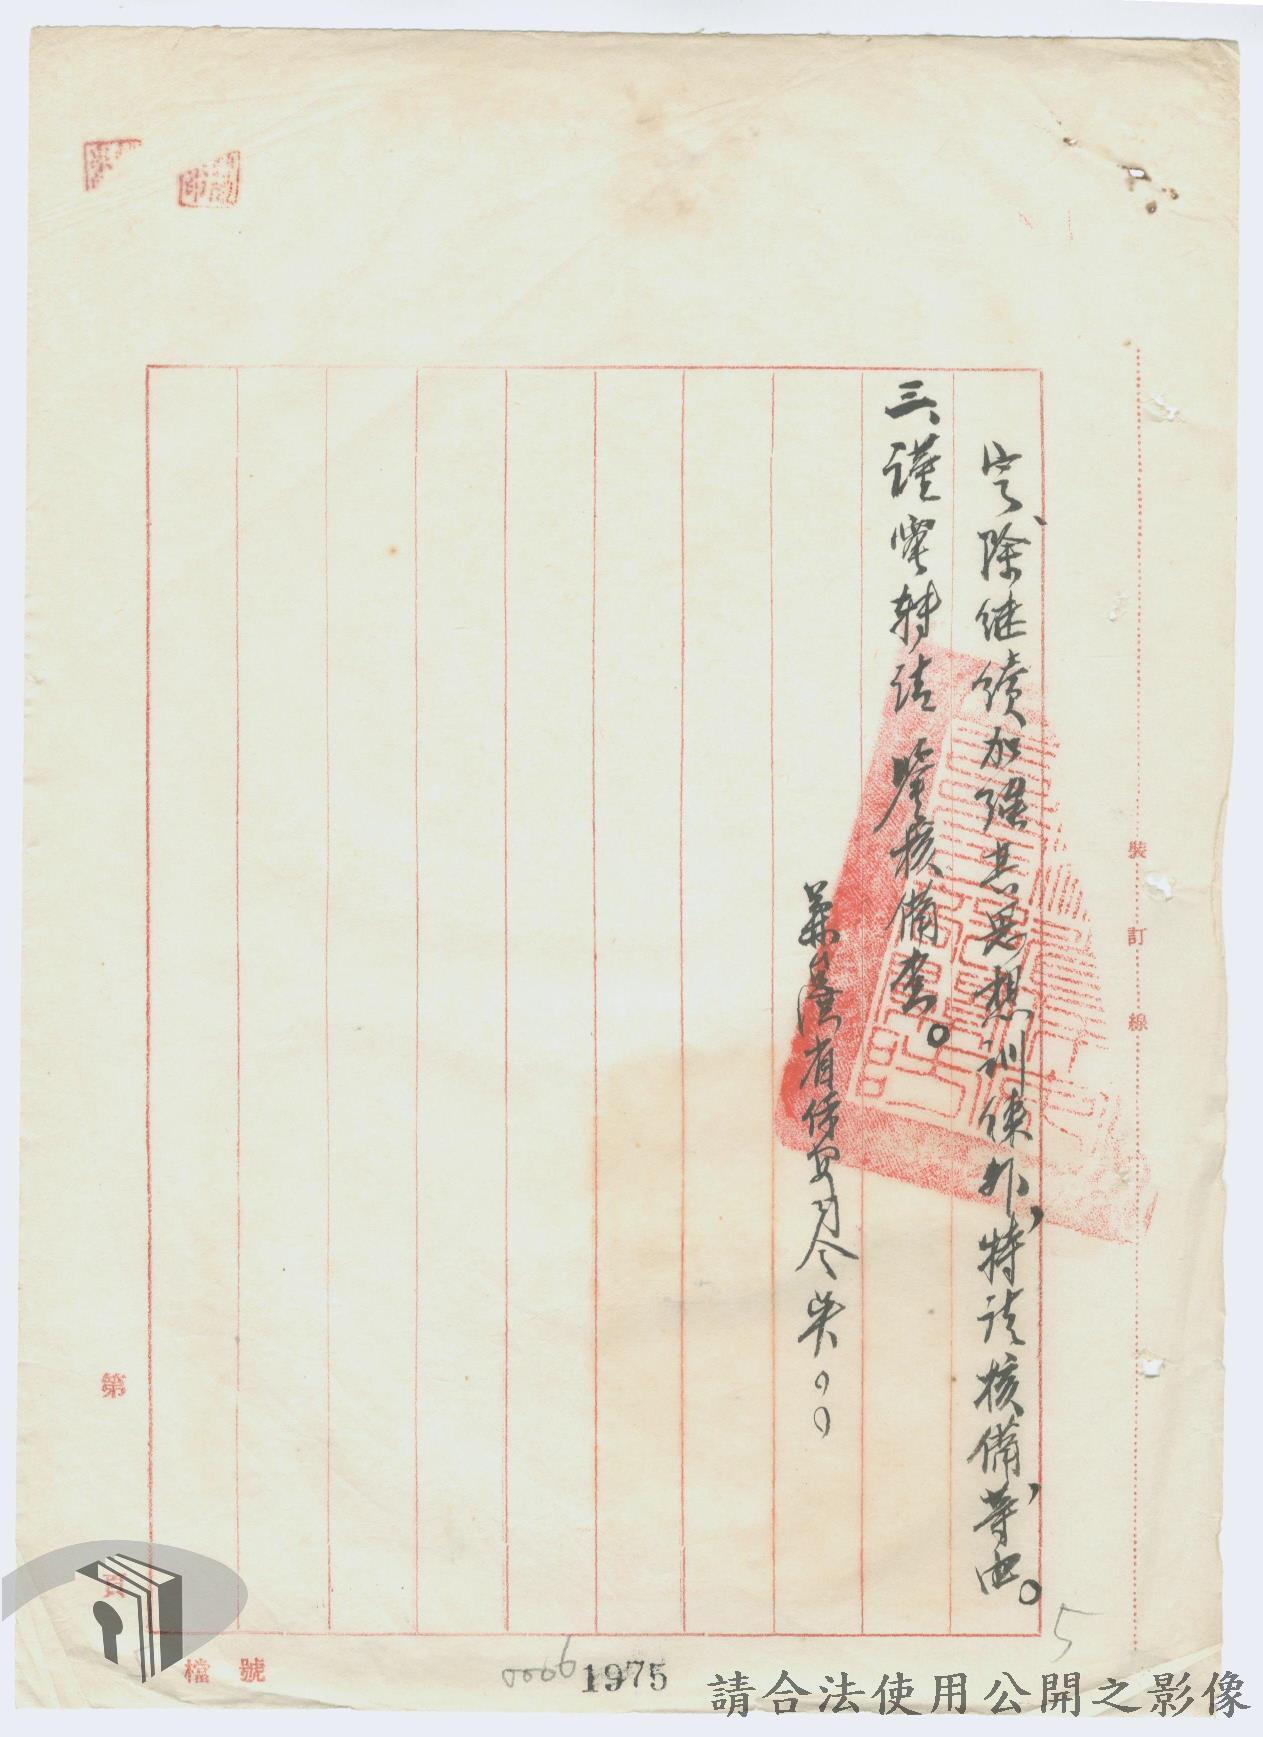 定、除继续加强其思想训練外，特請核備，等由。
三、謹電转請 鑒核備查。
兼台湾省保安司令吳○○
裝訂線
第
頁
檔 號
0006 1975
5
請合法使用公開之影像